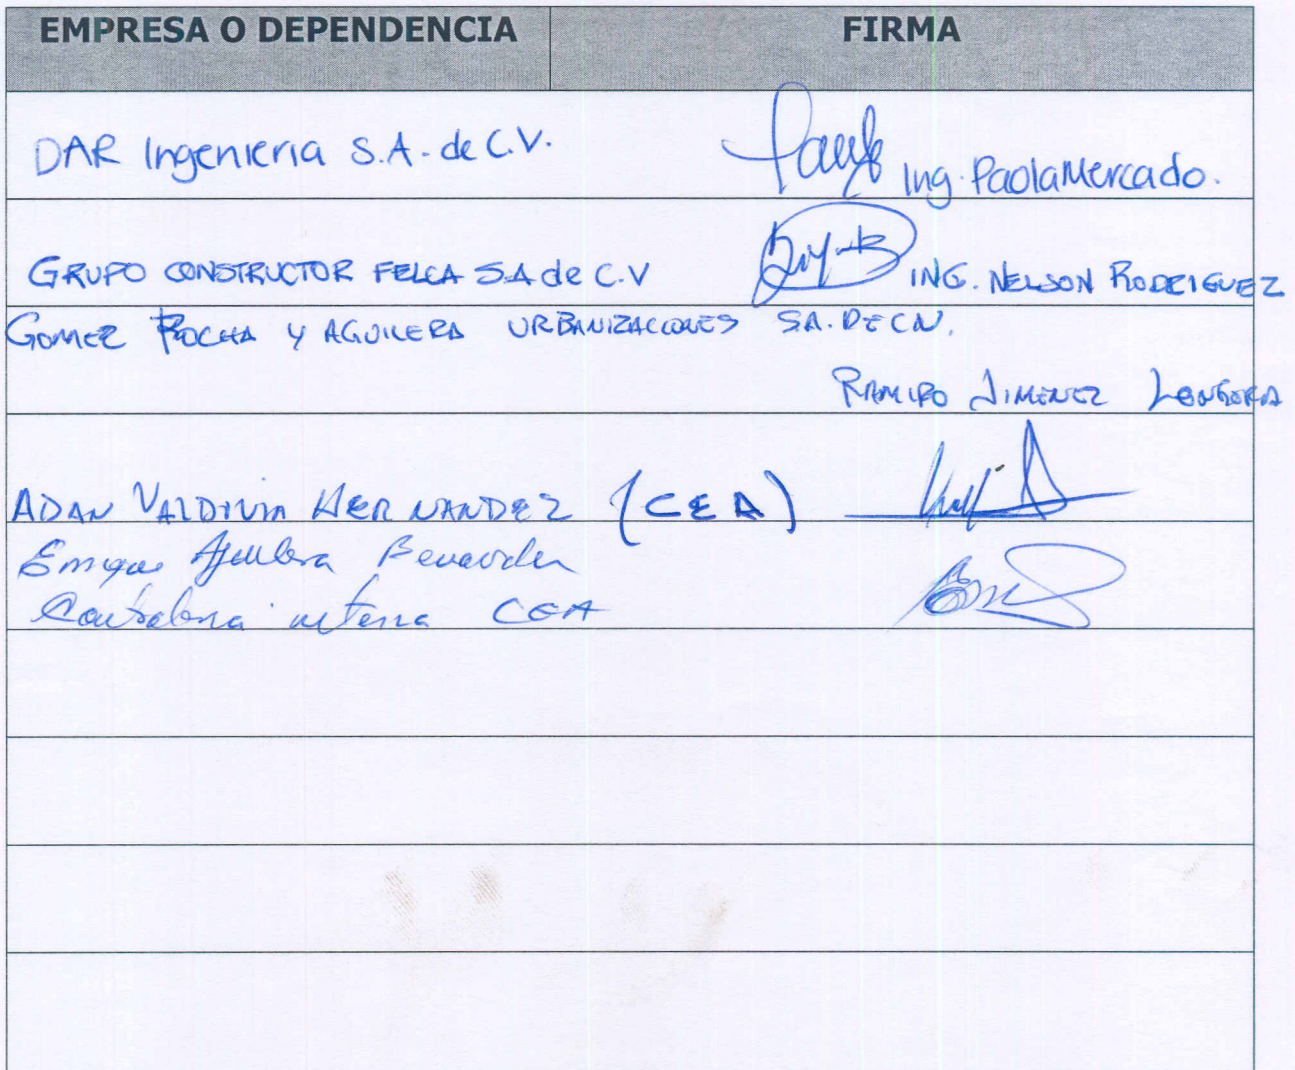 EMPRESA O DEPENDENCIA FIRMA
DAR Ingenieria S.A. de C.V. Ing. Paola Mercado.
GRUPO CONSTRUCTOR FELCA S.A de C.V ING. NELSON RODRIGUEZ
GOMEZ ROCHA Y AGUILERA URBANIZACIONES SA. DE CV.
RAMIRO JIMENEZ LONGORIA
ADAN VALDIVIA HERNANDEZ (CEA)
Enrique Aguilera
Contraloria interna CEA